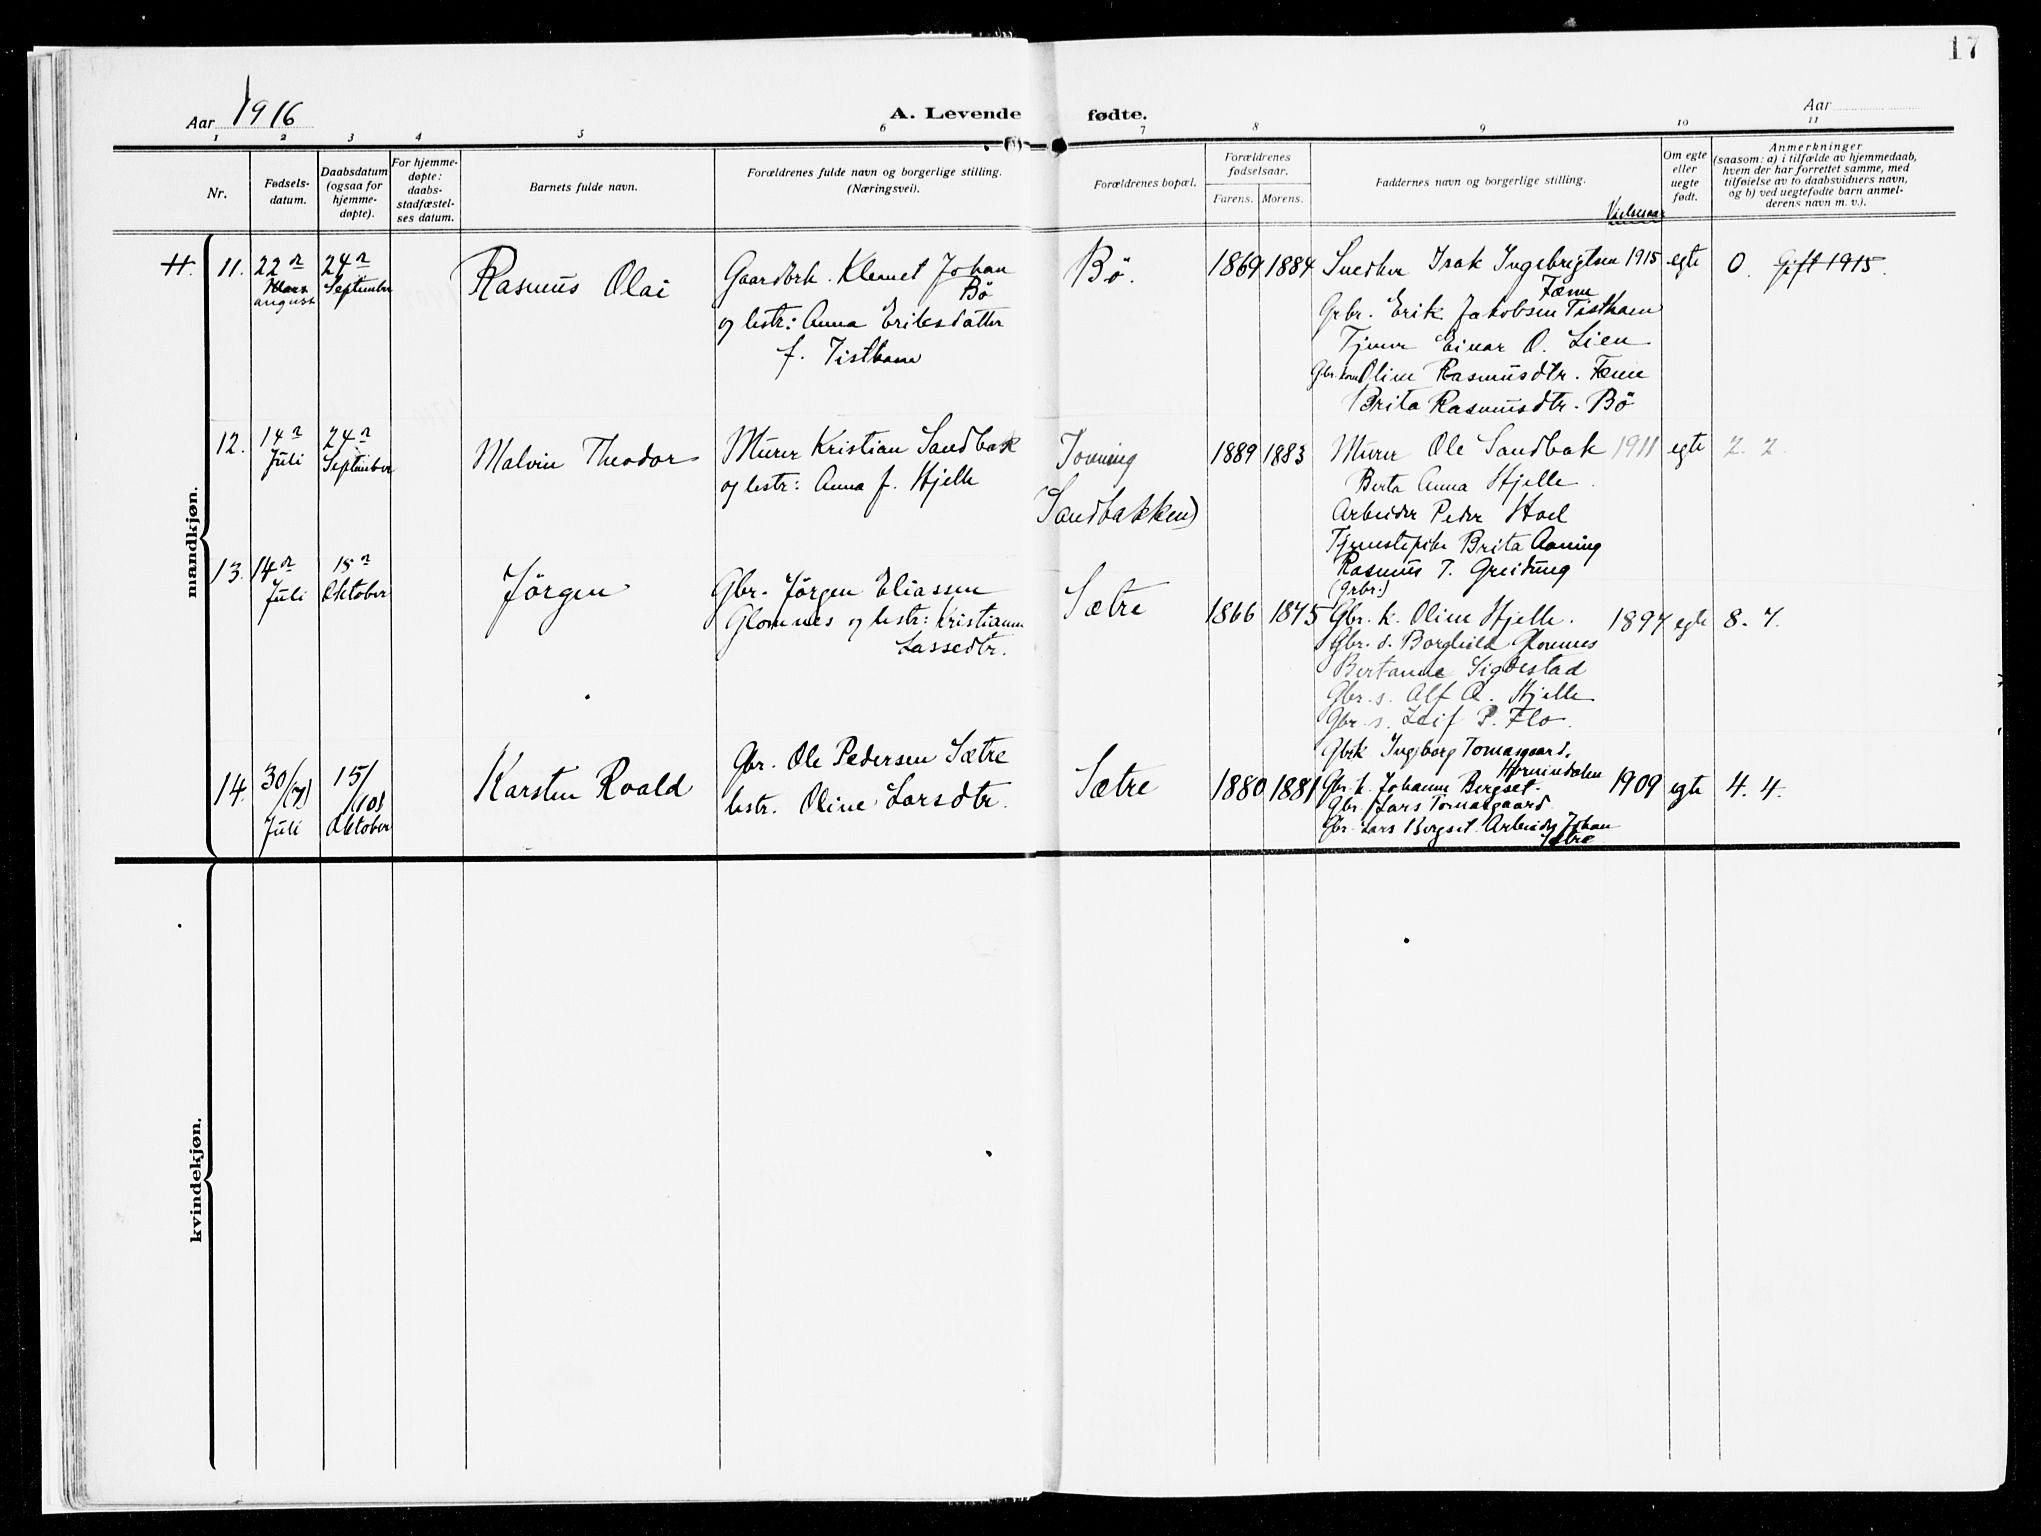 17
Aar 1916
A. Levende fødte.
Aar
1 2 3 4 5 6 7 8 9 10 11
Nr.
Fødsels-
datum.
Daabsdatum
(ogsaa for
hjemme-
døpte).
For hjemme-
døpte:
daabs-
stadfæstel-
ses datum.
Barnets fulde navn.
Forældrenes fulde navn og borgerlige stilling.
(Næringsvei).
Forældrenes bopæl.
Forældrenes
fødselsaar.
Farens. Morens.
Faddernes navn og borgerlige stilling.
Vielsesaar
Om egte
eller
uegte
født.
Anmerkninger
(saasom: a) i tilfælde av hjemmedaab,
hvem der har forrettet samme, med
tilføielse av to daabsvidners navn,
og b) ved uegtefødte barn anmel-
derens navn m. v.).
mandkjøn.
11. 11.
22n
august
24n
September
Rasmus Olai
Gaardbrk. Klemet Johan
Bö
og hstr: Anna Eriksdatter
f. Tistham
Bö.
1869 1884
Snedker Isak Ingebrigtsen 1915
Fæne
Grbr. Erik Jakobsen Tistham
Tjener Einar O. Lien
Gbr. kone Oline Rasmusdtr. Fæne
Brita Rasmusdtr. Bö
egte
0. Gift 1915.
12.
14n
Juli
24n
September
Malvin Theodor
Murer Kristian Sandbak
og hstr: Anna f. Hjelle
Tonning
(Sandbakken)
1889 1883
Murer Ole Sandbak 1911
Berta Anna Hjelle.
Arbeider Peder Hoel
Tjenestepike Brita Aaning
Rasmus T. Greidung
(Grbr.)
egte
2. 2.
13.
14n
Juli
15n
Oktober
Jörgen
Gbr. Jörgen Eliassen
Glomnes og hstr: Kristianne
Lassedtr.
Sætre
1866 1875
Gbr. k. Oline Hjelle. 1897
Gbr. d. Borghild Glomnes
Bertanne Sigdestad
Gbr. s. Alf A. Hjelle
Gbr. s. Leif P. Flo.
egte
8. 7.
14.
30/(7)
Juli
15/(10)
Oktober
Karsten Roald
Gbr. Ole Pedersen Sætre
hstr. Oline Larsdtr.
Sætre
1880 1881
Gbrk Ingeborg Tomasgaard,
Hornindalen
Gbr. k. Johanne Bergset. 1909
Gbr. Lars Tomasgaard
Gbr. Lars Bergset. Arbeider Johan
Sætre
egte
4. 4.
kvindekjøn.